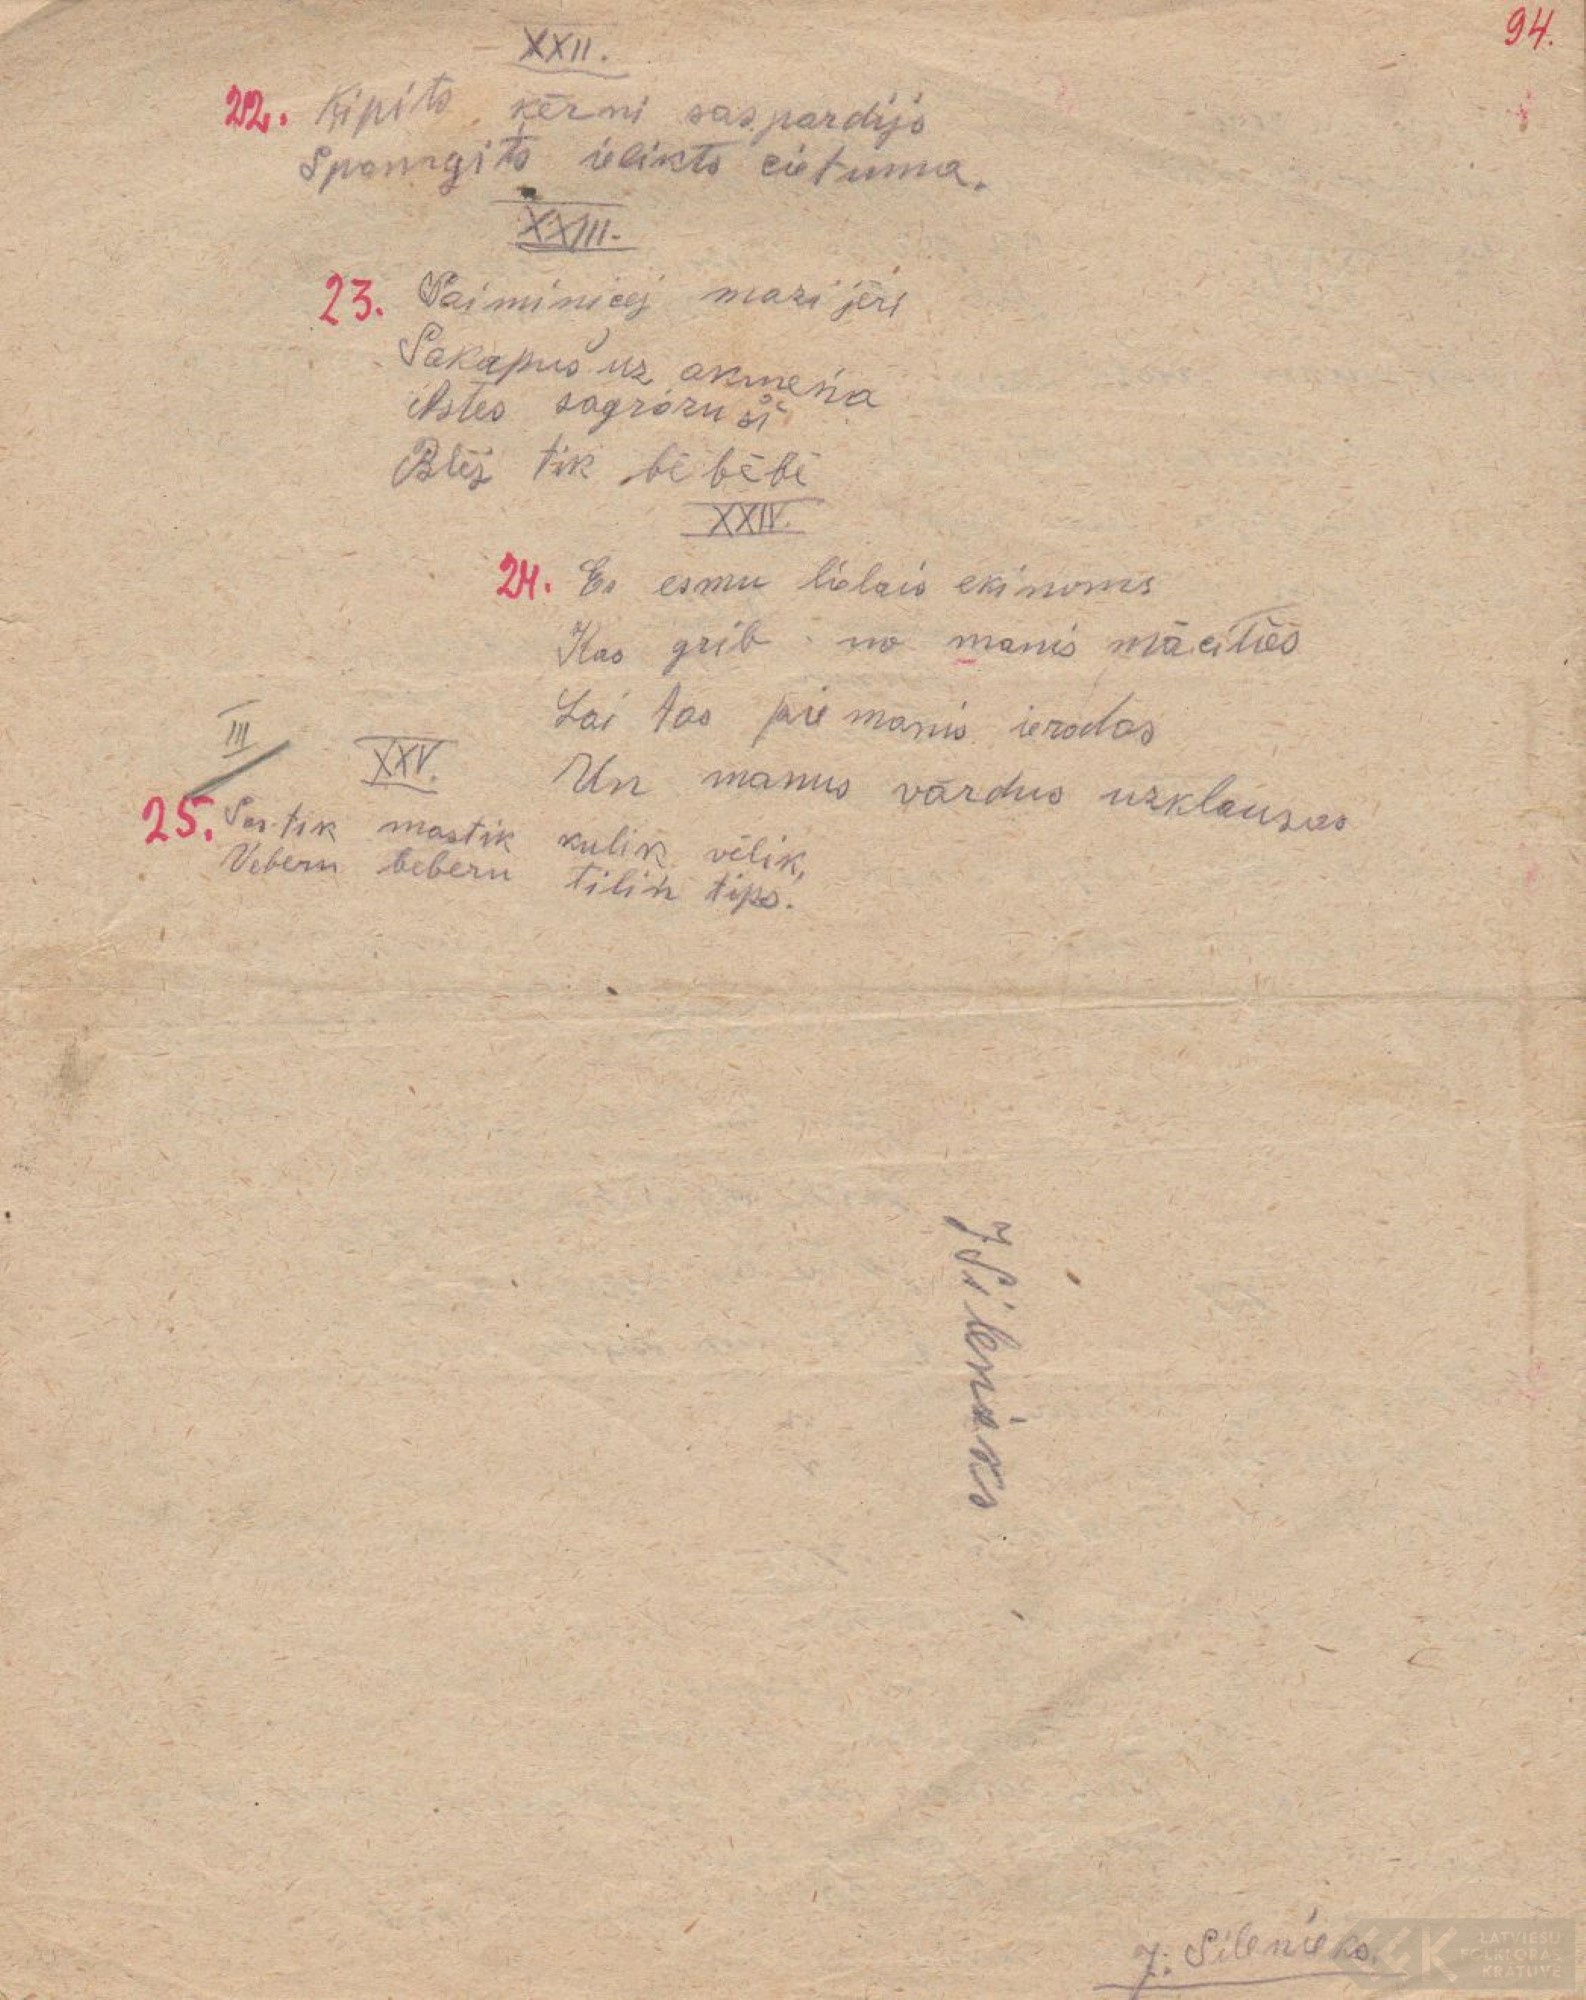 94.
XXII.
22. Ķipits ķērni saspardijs
Spangits ielikts cietuma.
XXIII.
23. Saiminicej mazi jēri
Sakāpuš uz akmeņa
Astes sagrozruši
Blēj tik bēbēbē
XXIV.
24. Es esmu lielais ekinoms
Kas grib no manis mācīties
Lai tas pie manis ierodas
Un manus vārdus uzklausas
III
XXV.
25. mastik kulik vēlik,
Veberu beberu tilin tips.
J Silenieks
J. Silenieks.
LATVIEŠU
FOLKLORAS
KRĀTUVE